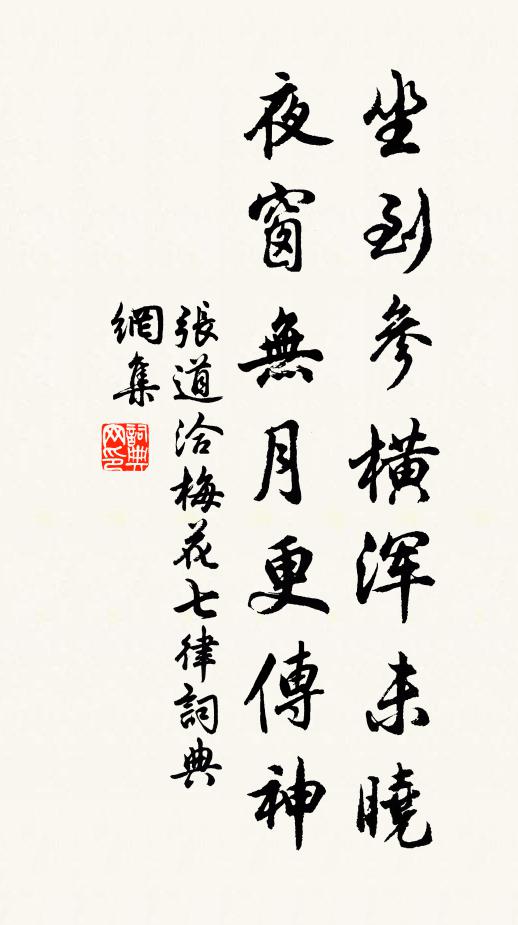 坐到參橫渾未曉
夜窗無月更傳神
張道洽梅花七律詞典
網集
詞典
网印